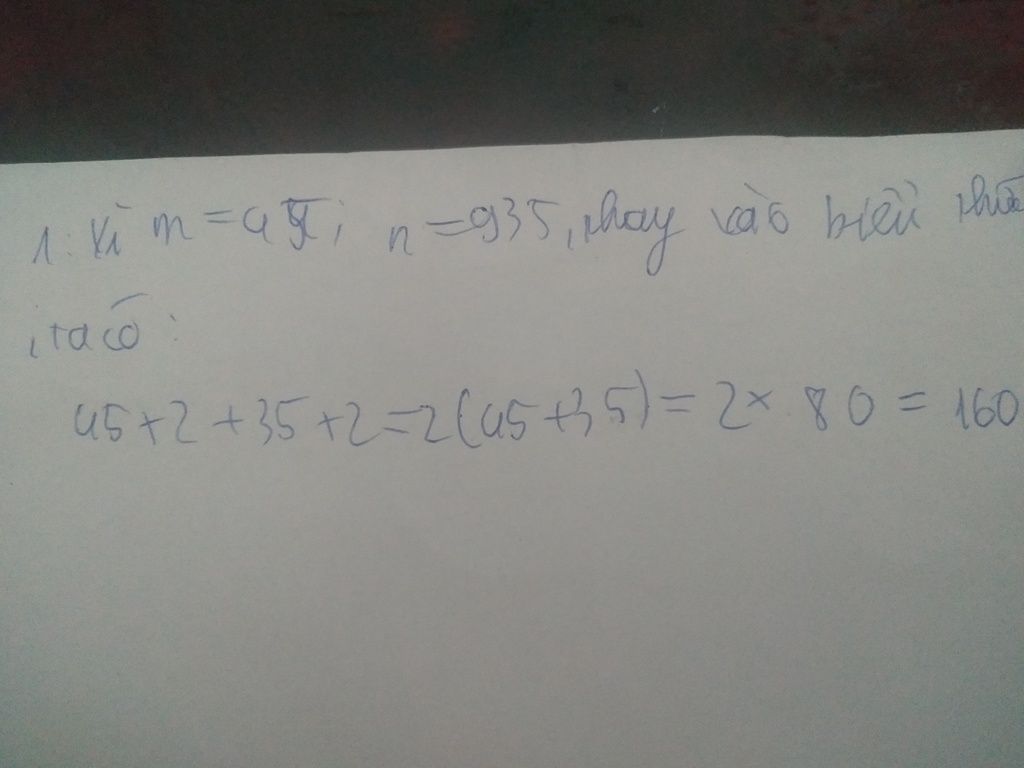 1: Vì m = 45; n = 35, thay vào biểu thức
, ta có:
45 + 2 + 35 + 2 = 2(45 + 35) = 2 × 80 = 160